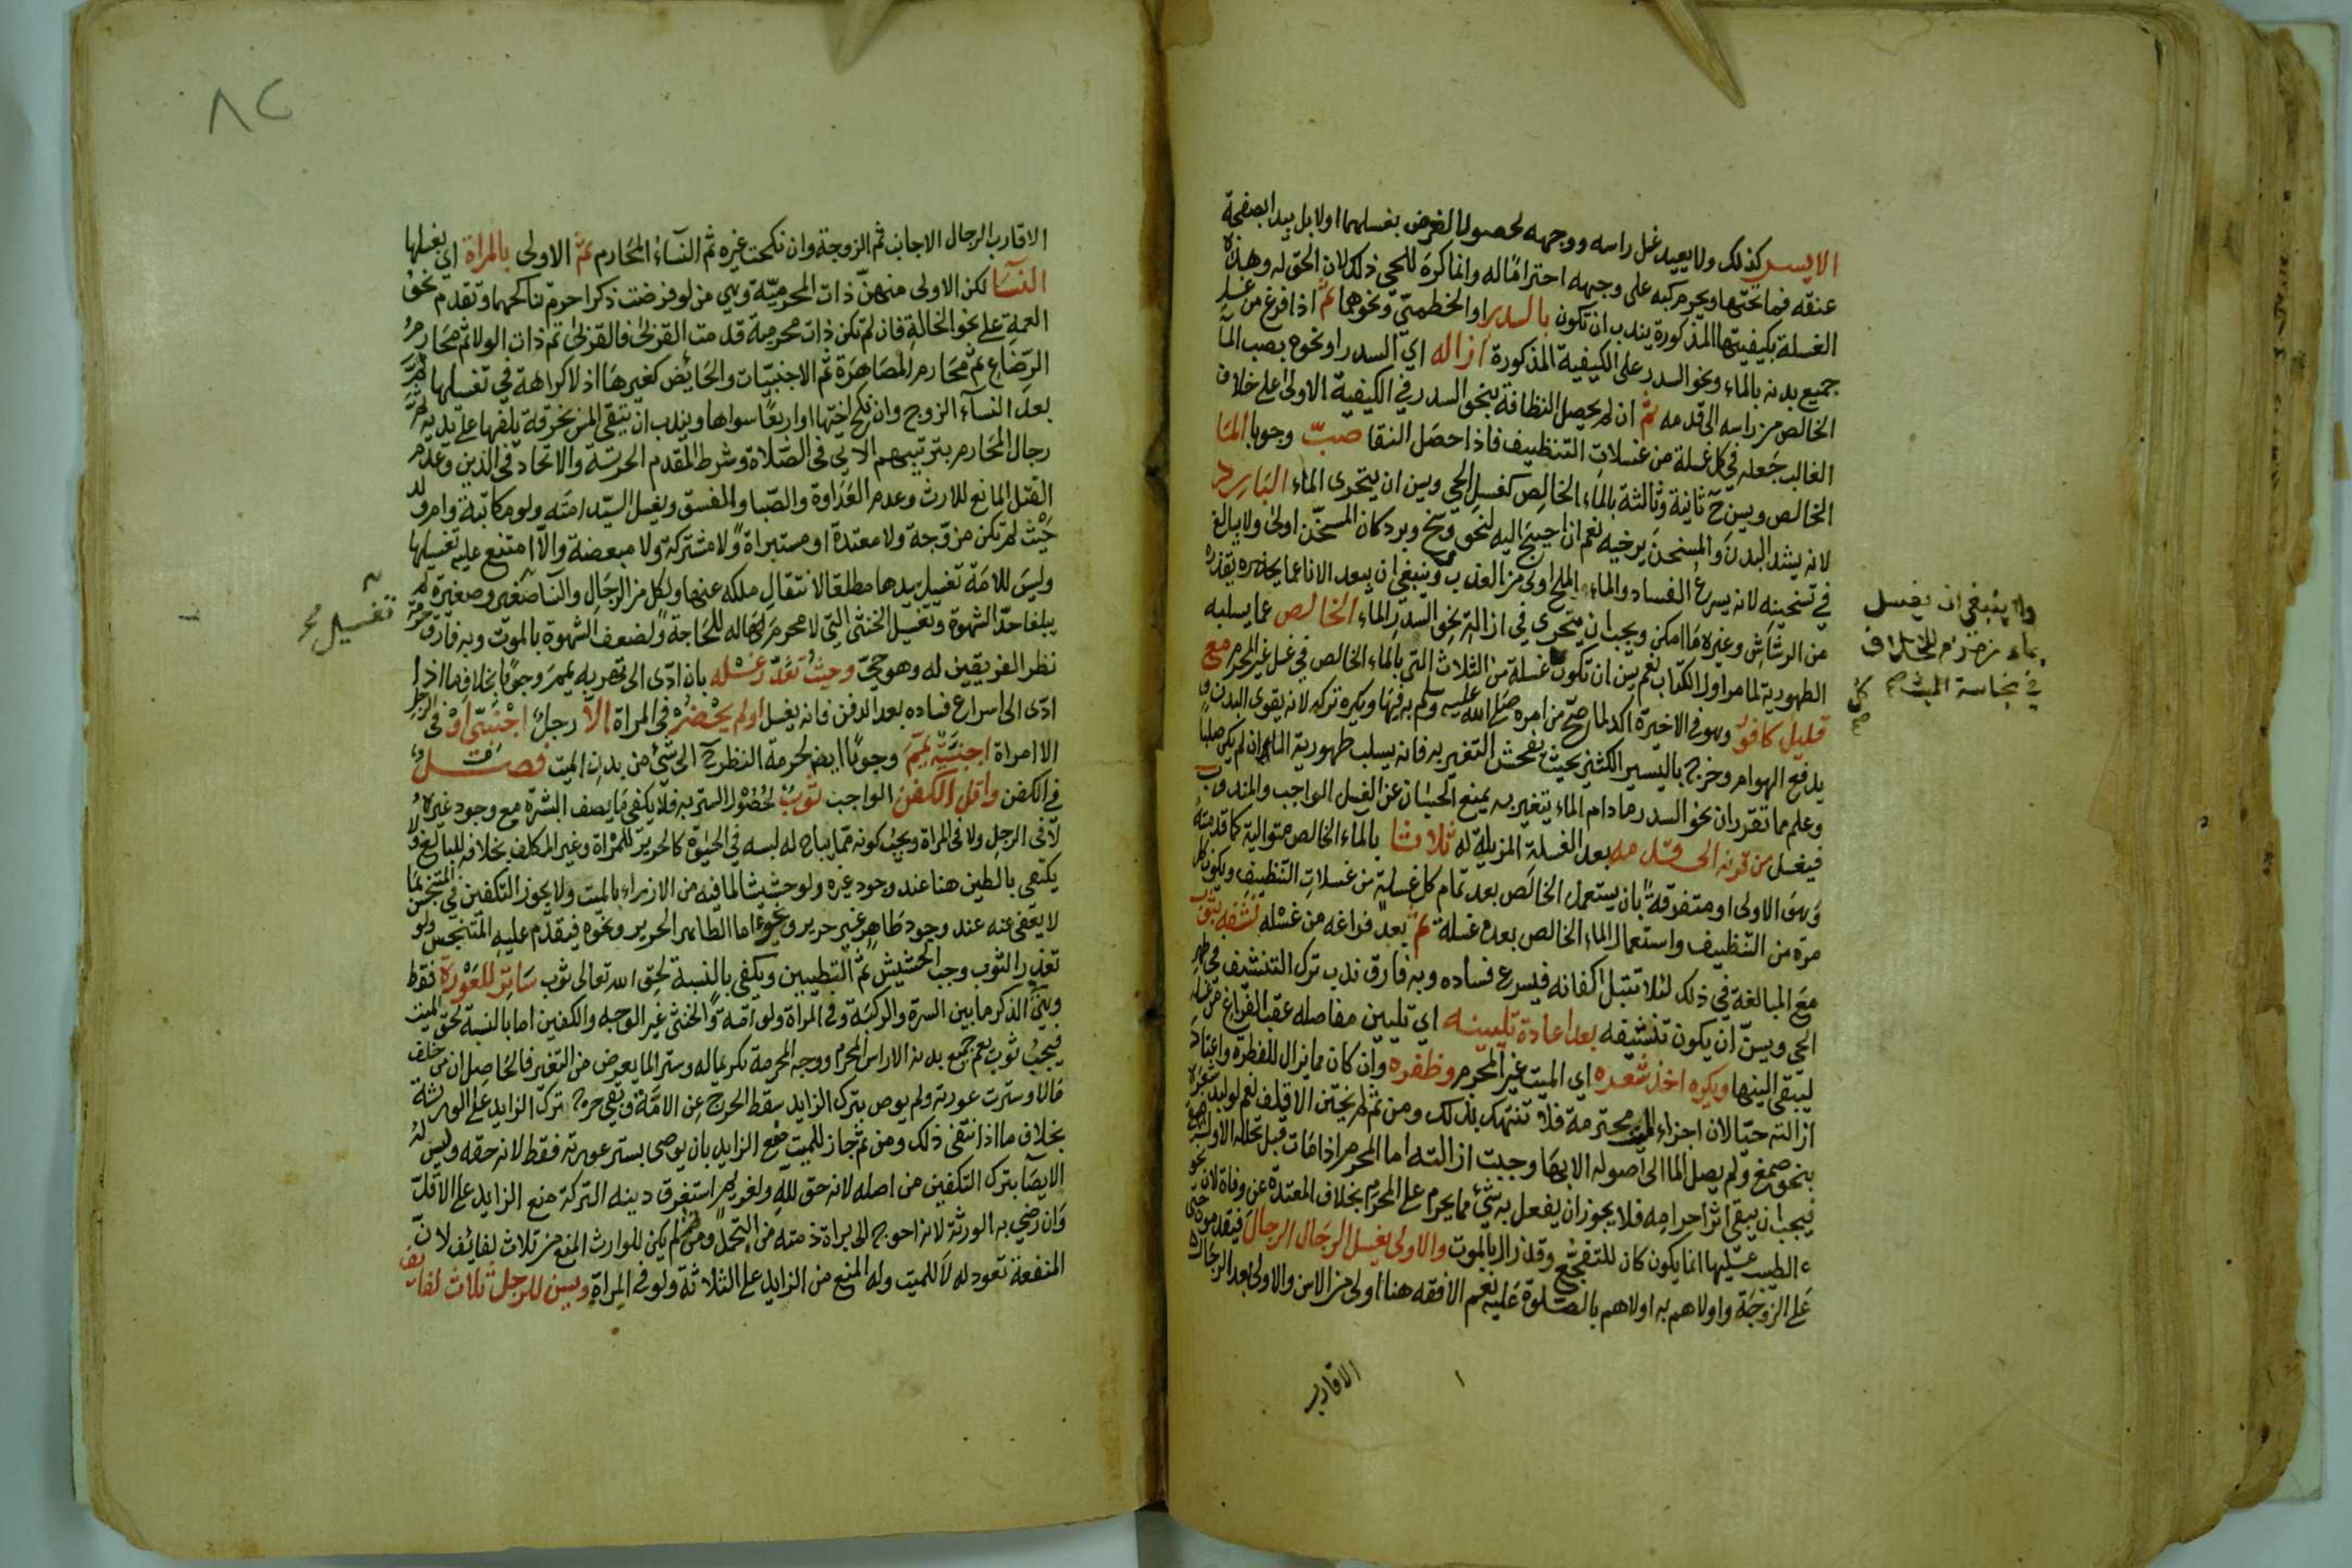 الايسر كذلك ولا يعيد غسل راسه ووجهه لحصول الفرض بغسلهما اولا بل يبدا بصفحة
عنقه فما تحتها ويحرم كبه على وجهه احتراما له وانما كره للحي ذلك لان الحق له وهذه
الغسلة بكيفيتها المذكورة يندب ان تكون بالسدر او الخطمي ونحوهما ثم اذا فرغ من غسل
جميع بدنه بالماء ونحو السدر على الكيفية المذكورة ازاله اي السدر او نحوه بصب الماء
الخالص من راسه الى قدمه ثم ان لم يحصل النظافة بنحو السدر في الكيفية الاولى على خلاف
الغالب جعله في كل غسلة من غسلات التنظيف فاذا حصل النقا صب وجوبا الما
الخالص ويسن ح ثانية وثالثة بالماء الخالص كغسل الحي ويسن ان يتحرى الماء البارد
لانه يشد البدن والمسخن يرخيه نعم ان احتيج اليه لنحو وسخ وبرد كان المسخن اولى ولا يبالغ
في تسخينه لانه يسرع الفساد والماء الملح اولى من العذب وينبغي ان يبعد الاناء عما يحذره يقذره
من الرشاش وغيره ما امكن ويجب ان يتحرى في ازالة نحو السدر الماء الخالص عما يسلبه
الطهورية لما مر اول الكتاب نعم يسن ان تكون غسلة من الثلاث التي بالماء الخالص في غسل غير المحرم مع
قليل كافور وهو في الاخيرة اكد لما صح من امره صلى الله عليه وسلم به فيها ويكره تركه لانه يقوى البدن و
يدفع الهوام وخرج باليسير الكثير بحيث يفحش التغير به فانه يسلب طهورية الماء ان لم يكن صلبا
وعلم مما تقرر ان نحو السدر ما دام الماء يتغير به يمنع الحسبان عن الغسل الواجب والمندوب
فيغسل من قرنه الى قدمه بعد الغسلة المزيلة له ثلاثا بالماء الخالص متوالية كما قدمته
وهو الاولى او متفرقة بان يستعمل الخالص بعد تمام كل غسلة من غسلات التنظيف ويكون كل
مرة من التنظيف واستعمال الماء الخالص بعده غسلة ثم بعد فراغه من غسله نشفه بثوب
مع المبالغة في ذلك لئلا تبتل اكفانه فيسرع فساده وبه فارق ندب ترك التنشيف في طهر
الحي ويسن ان يكون تنشيفه بعد اعادة تليينه اي تليين مفاصله عقب الفراغ من غسله
ليبقى لينها ويكره اخذ شعره اي الميت غير المحرم وظفره وان كان مما يزال للفطرة واعتاد
ازالته حيا لان اجزاء الميت محترمة فلا تنتهك بذلك ومن ثم لم يختن الاقلف نعم لو لبد شعره
بنحو صمغ ولم يصل الما الى اصوله الا بها وجبت ازالته اما المحرم اذا مات قبل تحلله الاول
فيجب ان يبقى اثر احرامه فلا يجوز ان يفعل به شيء مما يحرم على المحرم بخلاف المعتدة عن وفاة لان نحو
الطيب عليها انما يكون كان للتفجع وقد زال بالموت والاولى بغسل الرجال الرجال فيقدموا حتى
على الزوجة واولاهم به اولاهم بالصلوة عليه نعم الافقه هنا اولى من الاسن والاولى بعد الرجال
الاقارب
ولا ينبغي ان يغسل
بماء زمزم للخلاف
في نجاسة الميت صح
٨٢
الاقارب الرجال الاجانب ثم الزوجة وان نكحت غيره ثم النساء المحارم ثم الاولى بالمراة اي بغسلها
النسا لكن الاولى منهن ذات المحرمية وهي من لو فرضت ذكرا حرم تناكحهما وتقدم نحو
العمة على نحو الخالة فان لم تكن ذات محرمية قدمت القربى فالقربى ثم ذات الولا ثم محارم
الرضاع ثم محارم المصاهرة ثم الاجنبيات والحائض كغيرها اذ لا كراهة في تغسلها ثم
بعد النساء الزوج وان نكح اختها او اربعا سواها ويندب ان يتقي المس بخرقة يلفها على يديه ثم
رجال المحارم بترتيبهم الاتي في الصلاة وشرط المقدم الحرية والاتحاد في الدين وعدم
القتل المانع للارث وعدم العداوة والصبا والفسق ويغسل السيد امته ولو مكاتبة وام ولد
حيث لم تكن مزوجة ولا معتدة او مستبراة ولا مشتركة ولا مبعضة والا امتنع عليه تغسيلها
وليس للامة تغسيل سيدها مطلقا لانتقال ملكه عنها ولكل من الرجال والنسا صغير وصغيرة لم
يبلغا حد الشهوة وتغسيل الخنثى التي لا محرم له للحاجة ولضعف الشهوة بالموت وبه فارق حرمة
نظر الفريقين له وهو حي وحيث تعذر غسله بان ادى الى تهريه يمم وجوبا بخلاف ما اذا
ادى الى اسراع فساده بعد الدفن فانه يغسل او لم يحضر في المراة الا رجل اجنبي او في الرجل
الا امراة اجنبية يمم وجوبا ايض لحرمة النظر ح الى شيء من بدن الميت فصل
في الكفن واقل الكفن الواجب ثوب لحصول الستر به فلا يكفي ما يصف البشرة مع وجود غيره
لا في الرجل ولا في المراة ويجب كونه مما يباح له لبسه في الحيوة كالحرير للمراة وغير المكلف بخلافه للبالغ ولا
يكتفى بالطين هنا عند وجود غيره ولو حشيشا لما فيه من الازراء بالميت ولا يجوز التكفين في المتنجس بما
لا يعفى عنه عند وجود طاهر غير حرير ونحوه اما الطاهر الحرير ونحوه فيقدم عليه المتنجس ولو
تعذر الثوب وجب الحشيش ثم التطيين ويكفي بالنسبة لحق الله تعالى ثوب ساتر للعورة فقط
وهي الذكر ما بين السرة والركبة وفي المراة ولو امة والخنثى غير الوجه والكفين اما بالنسبة لحق الميت
فيجب ثوب يعم جميع بدنه الا راس المحرم ووجه المحرمة تكريما له وستر لما يعرض من التغير فالحاصل ان من خلف
مالا وسترت عورته ولم يوص بترك الزايد سقط الحرج عن الامة وبقي حرج ترك الزايد على الورثة
بخلاف ما اذا انتفى ذلك ومن ثم جاز للميت منع الزايد بان يوصي بستر عورته فقط لانه حقه وليس له
الايصا بترك التكفين من اصله لانه حق لله ولغريم استغرق دينه التركة منع الزايد على الاقل
وان رضي به الورثة لانه احوج الى براة ذمته من التجمل ومن ثم لم يكن للوارث المنع من ثلاث لفائف لان
المنفعة تعود له لا للميت وله المنع من الزايد على الثلاثة ولو في المراة ويسن للرجل ثلاث لفايف
تغسيل محرم